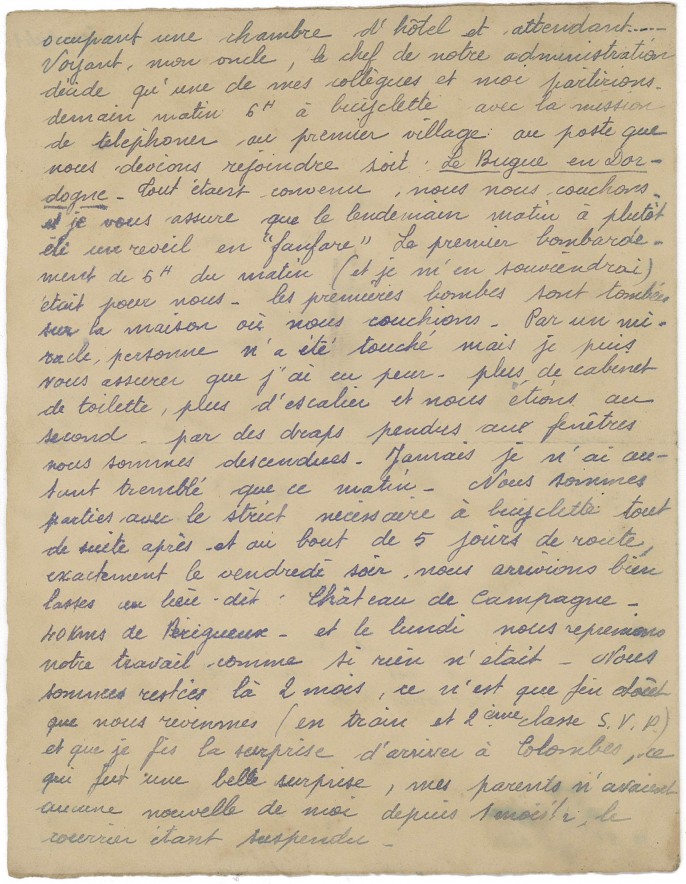 occupant une chambre d'hôtel et attendant....
Voyant, mon oncle, le chef de notre administration
décide qu'une de mes collègues et moi partirions
demain matin 6H à bicyclette avec la mission
de telephoner au premier village au poste que
nous devions rejoindre soit : Le Bugue en Dor-
dogne - Tout étaient convenu, nous nous couchons -
et je vous assure que le lendemain matin à plutôt
été un reveil en "fanfare" Le premier bombarde-
ment de 5H du matin (et je m'en souviendrai)
était pour nous - les premières bombes sont tombées
sur la maison où nous couchions - Par un mi-
racle, personne n'a été touché mais je puis
vous assurer que j'ai eu peur - plus de cabinet
de toilette, plus d'escalier et nous étions au
second - par des draps pendus aux fenêtres
nous sommes descendues - Jamais je n'ai au-
tant tremblé que ce matin - Nous sommes
parties avec le strict nécessaire à bicyclette tout
de suite après - et au bout de 5 jours de route,
exactement le vendredi soir, nous arrivions bien
lasses au lieu-dit : Château de Campagne -
40 Kms de Périgueux - et le lundi nous reprenions
notre travail comme si rien n'était - Nous
sommes restées là 2 mois, ce n'est que fin Août
que nous revînmes (en train et 2ème classe S.V.P.)
et que je fis la surprise d'arriver à Colombes, ce
qui fut une belle surprise, mes parents n'avaient
aucune nouvelle de moi depuis 1 mois ½, le
courrier étant suspendu -